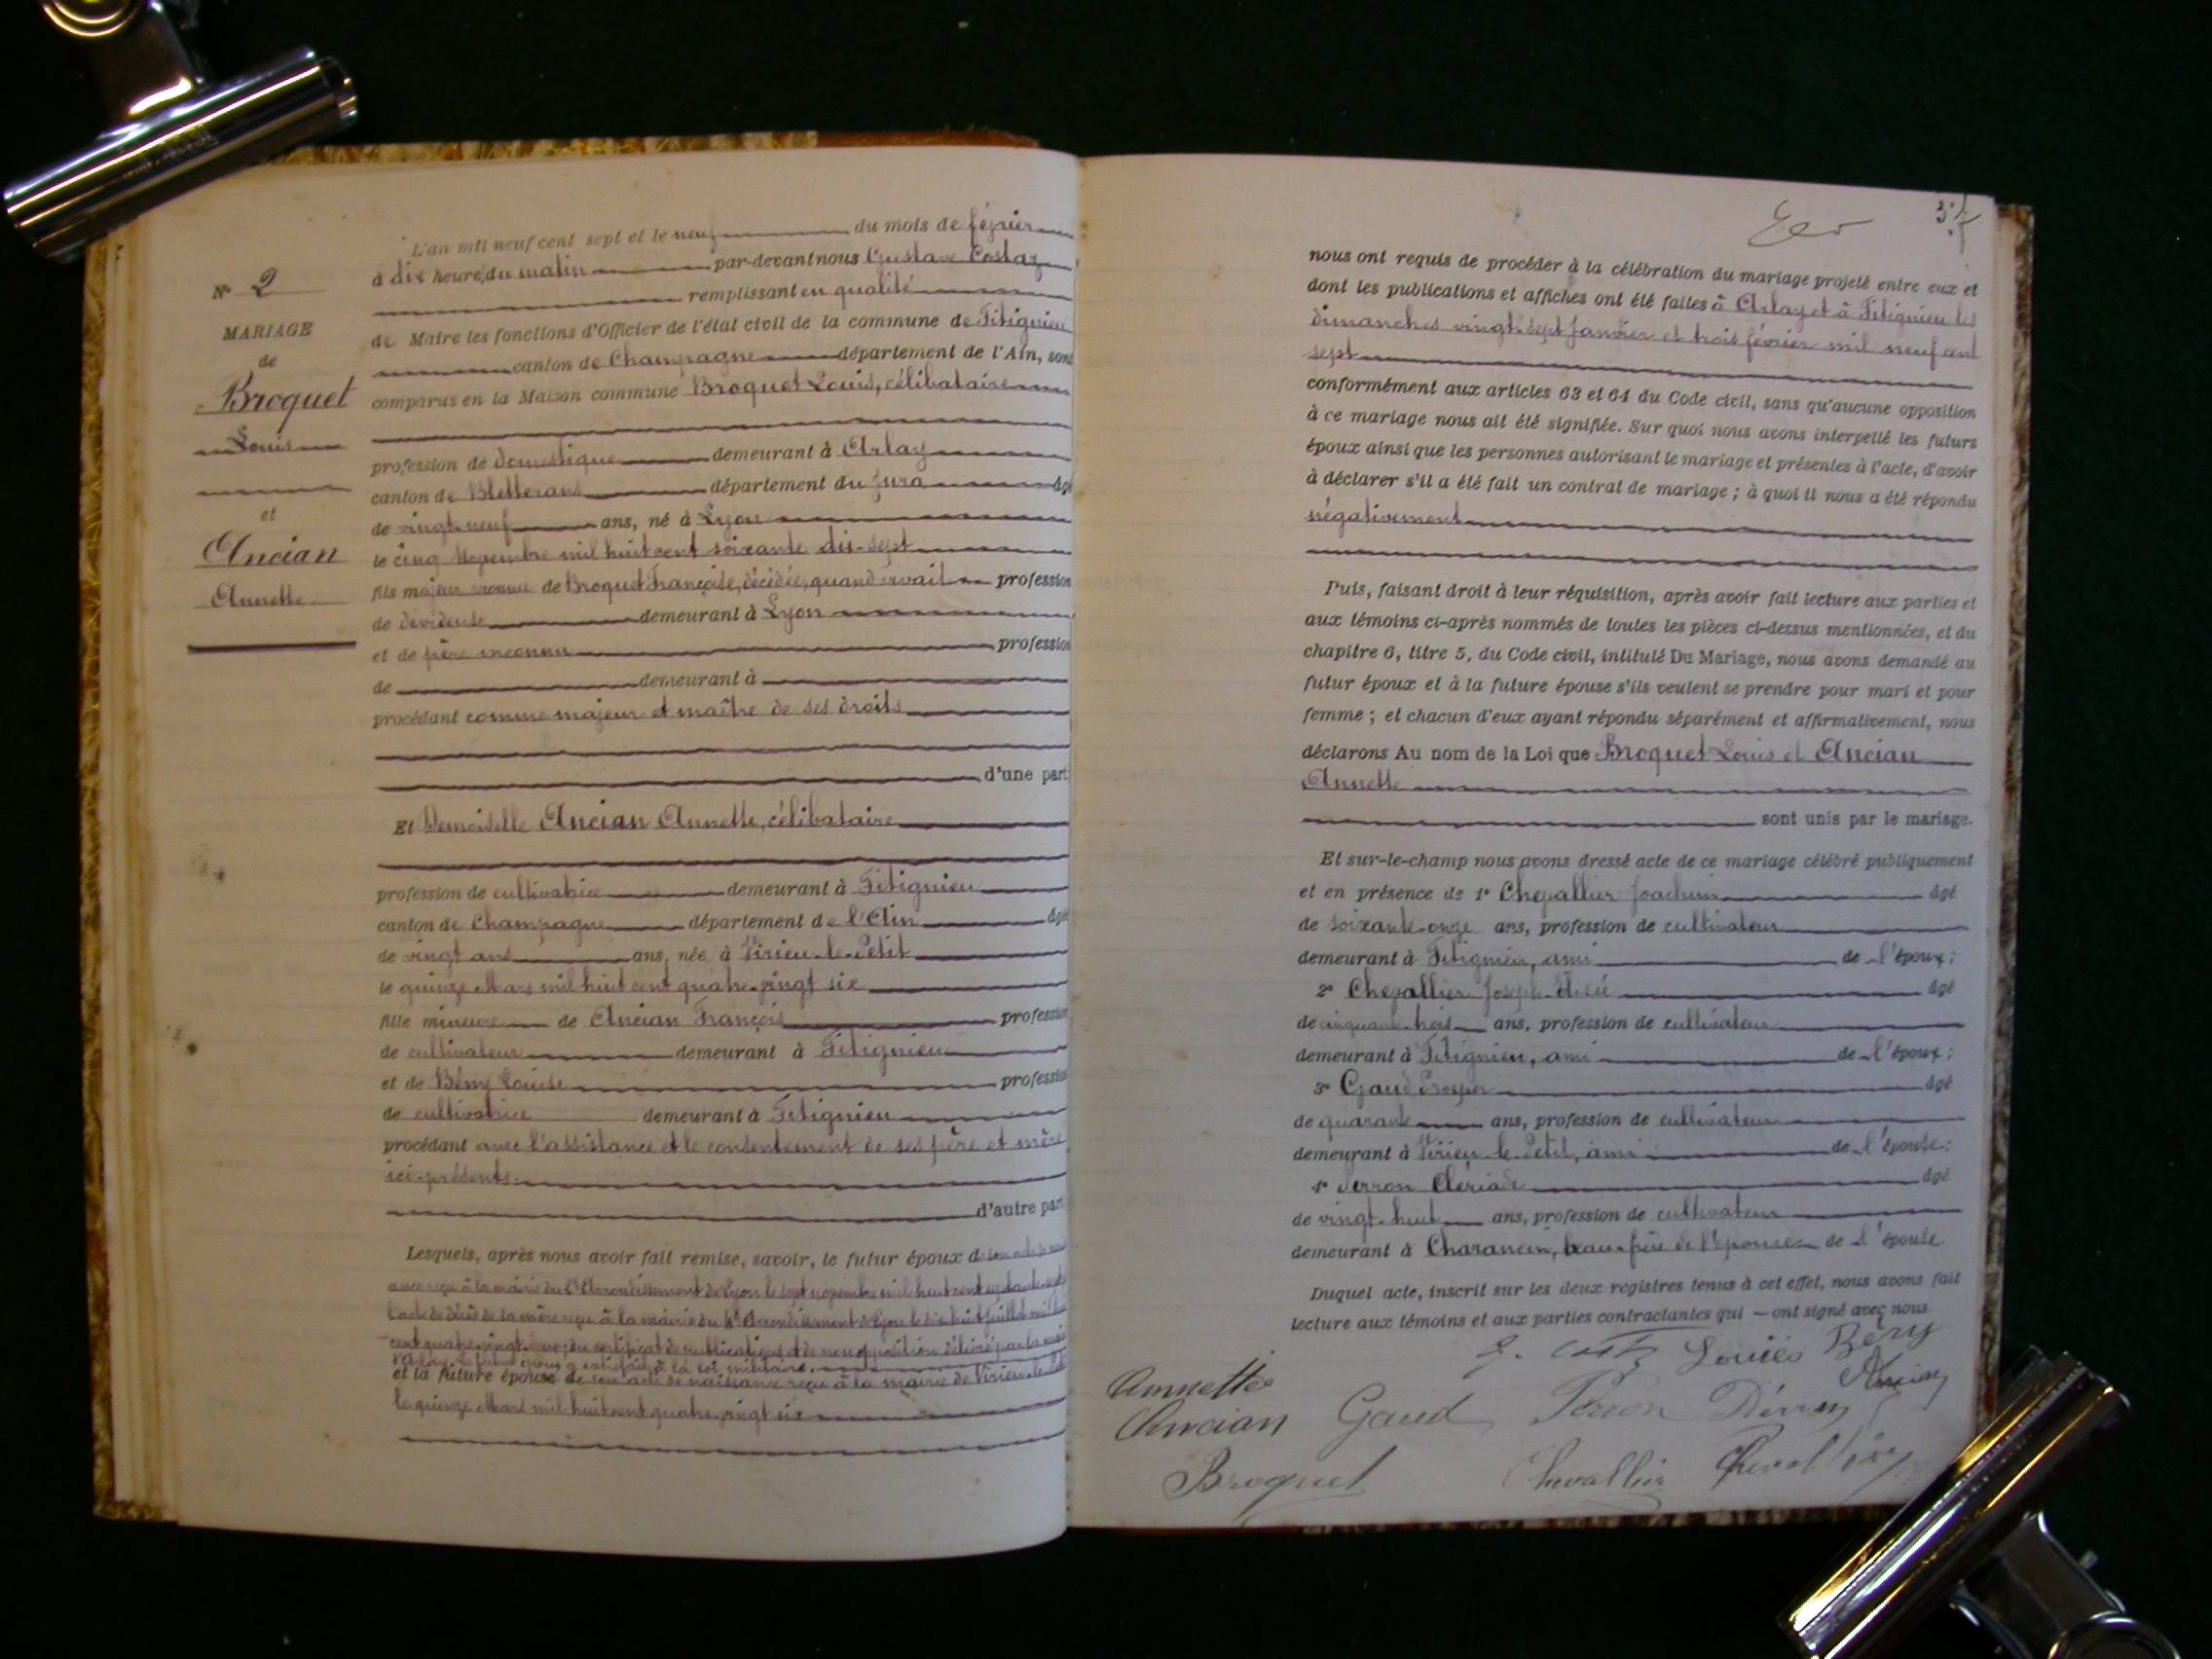 N° 2
MARIAGE
de
Broquet
Louis
et
Ancian
Annette
L'an mil neuf cent sept et le neuf du mois de février
à dix heures du matin par-devant nous Gustave Costaz
remplissant en qualité
de Maire les fonctions d'Officier de l'état civil de la commune de Fitignieu
canton de Champagne département de l'Ain, sont
comparus en la Maison commune Broquet Louis, célibataire
profession de domestique demeurant à Arlay
canton de Bletterans département du Jura âgé
de vingt-neuf ans, né à Lyon
le cinq Novembre mil huit cent soixante dix-sept
fils majeur de Broquet Françoise, décédée, quand vivait profession
de dévideuse demeurant à Lyon
et de père inconnu profession
de demeurant à
procédant comme majeur et maître de ses droits
d'une part
Et Demoiselle Ancian Annette, célibataire
profession de cultivatrice demeurant à Fitignieu
canton de Champagne département de l'Ain âgé
de vingt ans ans, née à Virieu-le-Petit
le quinze Mars mil huit cent quatre-vingt six
fille mineure de Ancian François profession
de cultivateur demeurant à Fitignieu
et de Bény Louise profession
de cultivatrice demeurant à Fitignieu
procédant avec l'assistance et le consentement de ses père et mère
ici présents.
d'autre part
Lesquels, après nous avoir fait remise, savoir, le futur époux de son acte de
reçu à la mairie du Arrondissement de Lyon le sept novembre mil huit cent
l'acte de décès de sa mère reçu à la mairie du 4e Arrondissement de Lyon le dix huit juillet mil
cent quatre-vingt du certificat de publications et de non opposition délivré par la
le futur époux a satisfait à la loi militaire.
et la future épouse de son acte de naissance reçu à la mairie de Virieu-le-Petit
le quinze Mars mil huit cent quatre-vingt six
nous ont requis de procéder à la célébration du mariage projeté entre eux et
dont les publications et affiches ont été faites à Arlay et à Fitignieu les
dimanches vingt-sept janvier et trois février mil neuf cent
sept
conformément aux articles 63 et 64 du Code civil, sans qu'aucune opposition
à ce mariage nous ait été signifiée. Sur quoi nous avons interpellé les futurs
époux ainsi que les personnes autorisant le mariage et présentes à l'acte, d'avoir
à déclarer s'il a été fait un contrat de mariage ; à quoi il nous a été répondu
négativement
Puis, faisant droit à leur réquisition, après avoir fait lecture aux parties et
aux témoins ci-après nommés de toutes les pièces ci-dessus mentionnées, et du
chapitre 6, titre 5, du Code civil, intitulé Du Mariage, nous avons demandé au
futur époux et à la future épouse s'ils veulent se prendre pour mari et pour
femme ; et chacun d'eux ayant répondu séparément et affirmativement, nous
déclarons Au nom de la Loi que Broquet Louis et Ancian
Annette
sont unis par le mariage.
Et sur-le-champ nous avons dressé acte de ce mariage célébré publiquement
et en présence de 1° Chevallier Joachim âgé
de soixante-onze ans, profession de cultivateur
demeurant à Fitignieu, ami de l'époux ;
2° Chevallier Joseph âgé
de cinquante-trois ans, profession de cultivateur
demeurant à Fitignieu, ami de l'époux ;
3° Gaud Prosper âgé
de quarante ans, profession de cultivateur
demeurant à Virieu-le-Petit, ami de l'épouse ;
4° Perron Clériade âgé
de vingt-huit ans, profession de cultivateur
demeurant à Charancin, beau-frère de l'épouse de l'épouse
Duquel acte, inscrit sur les deux registres tenus à cet effet, nous avons fait
lecture aux témoins et aux parties contractantes qui — ont signé avec nous
Louise Bény
Annette
Ancian Gaud Perron Ancian
Broquet Chevallier Chevallier